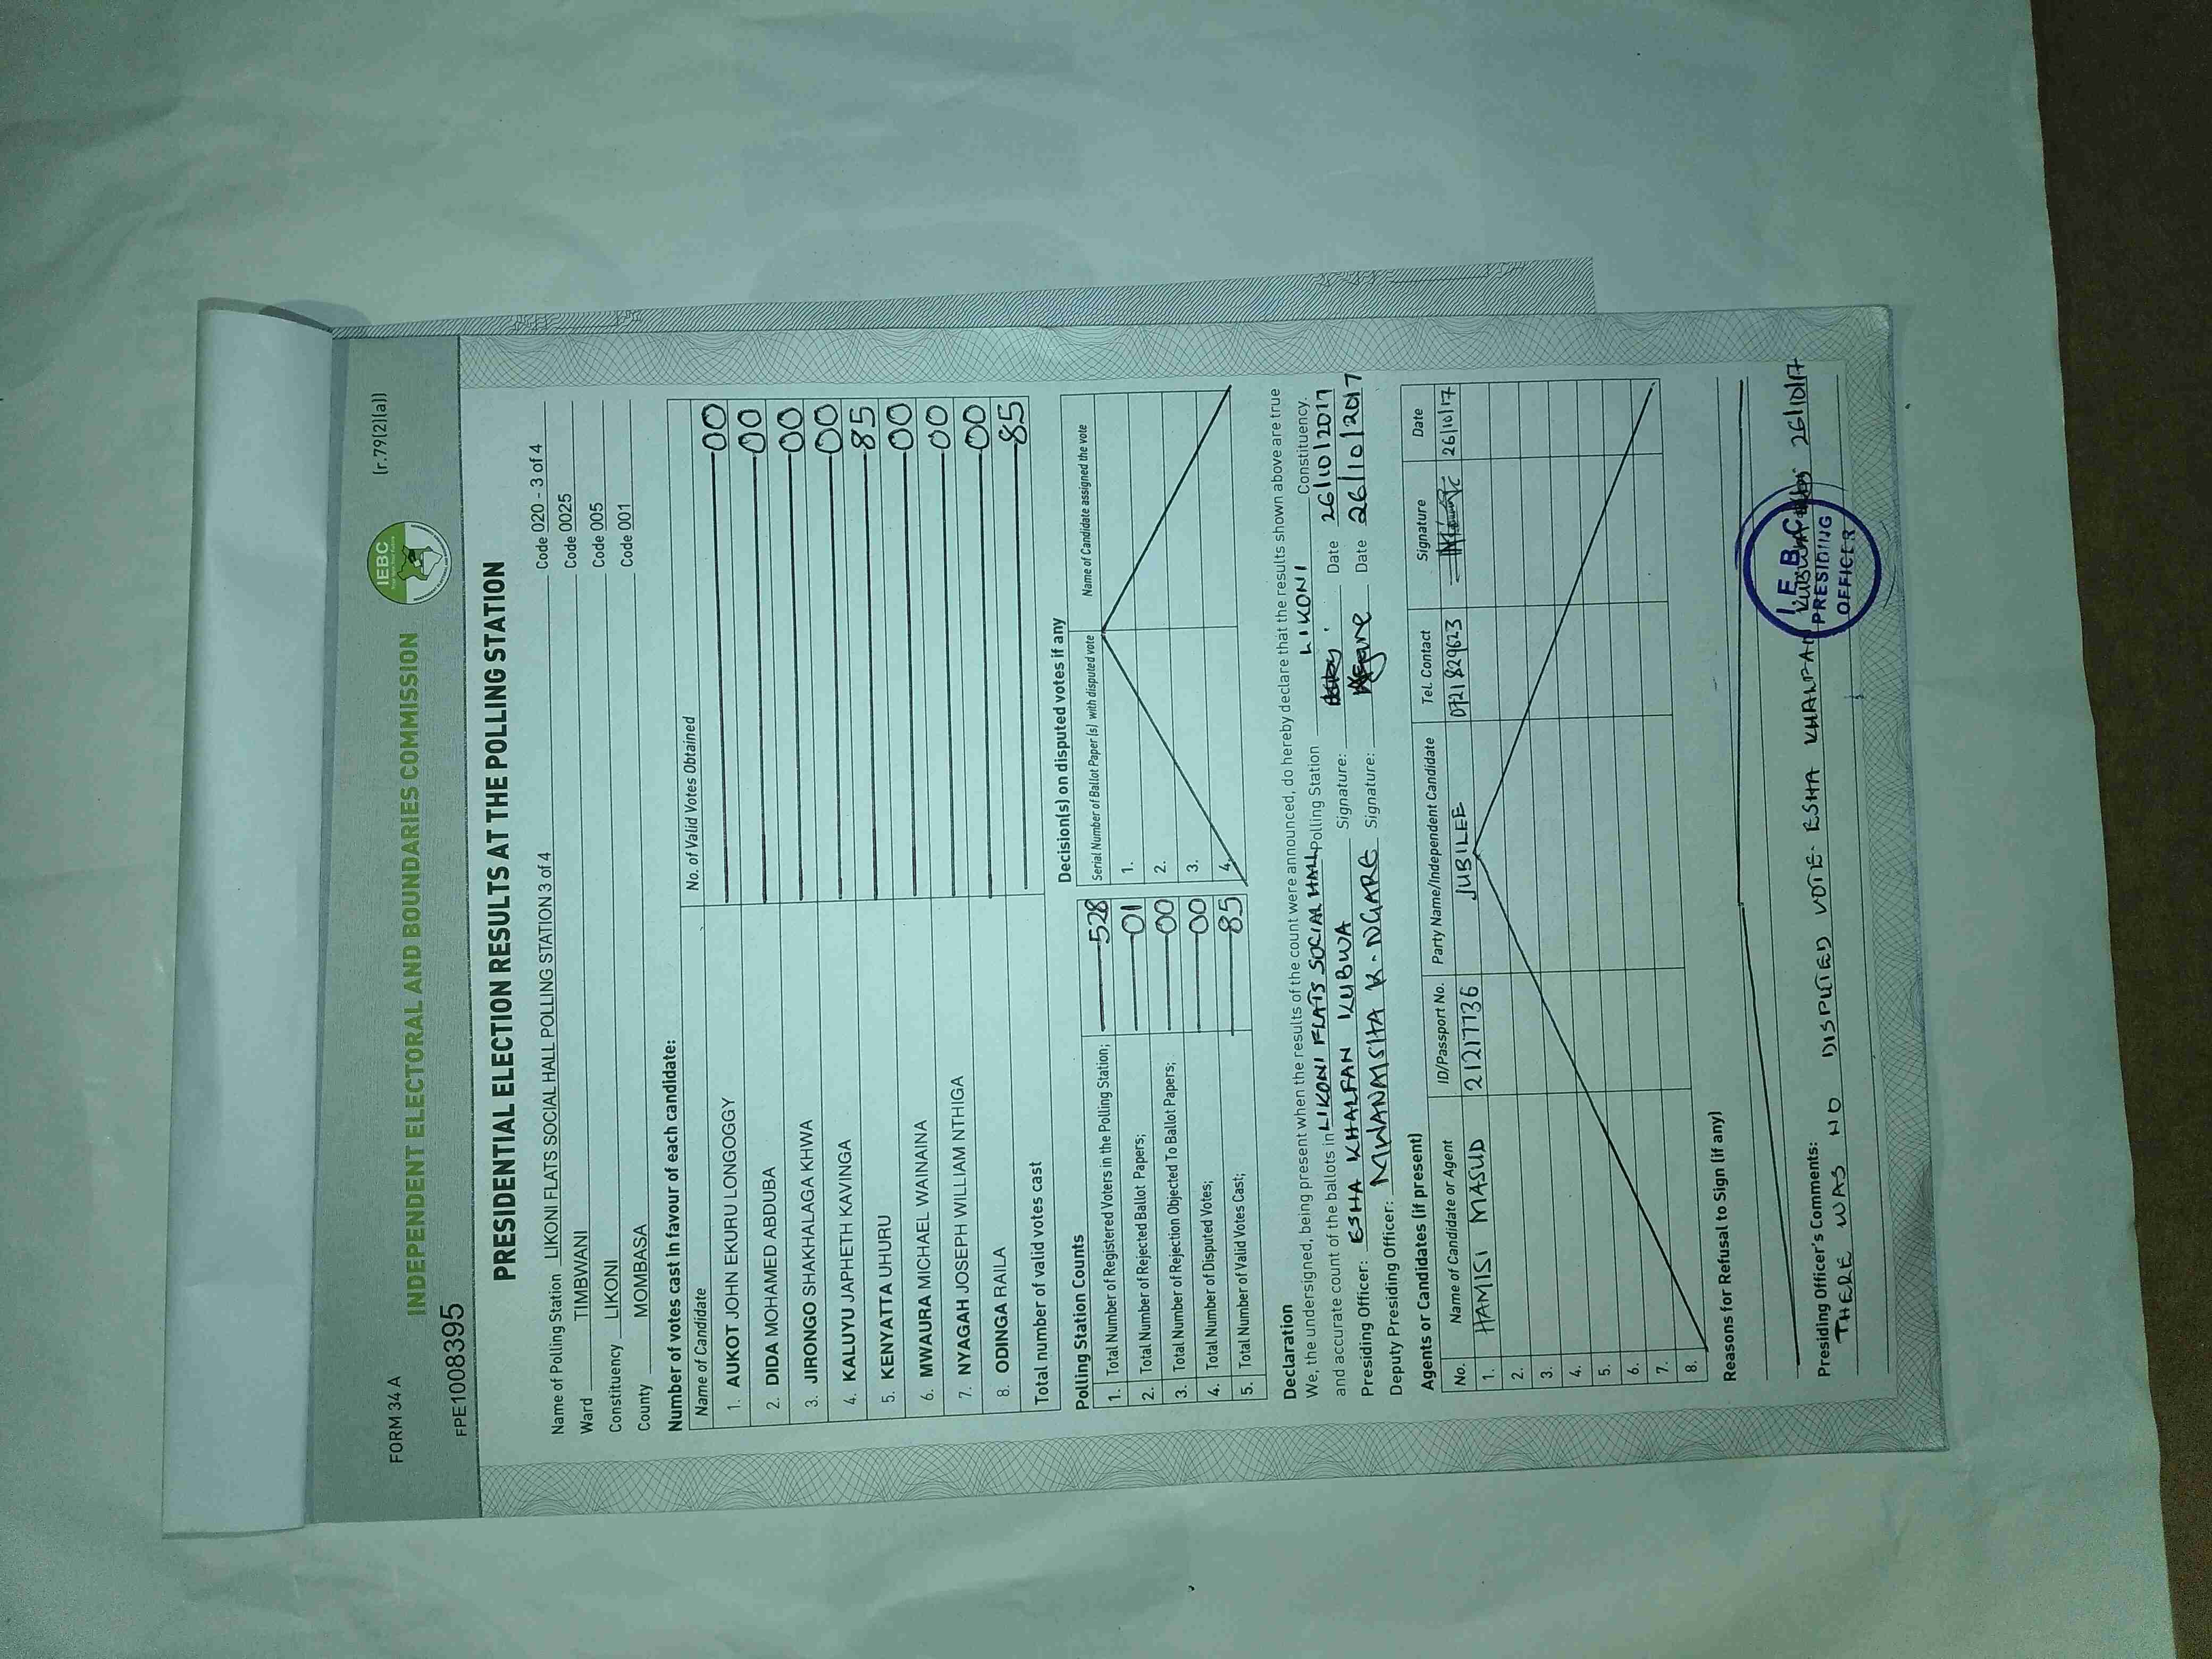 FORM 34 A
(r.79(2)(a))
IEBC
INDEPENDENT ELECTORAL AND BOUNDARIES COMMISSION
FPE1008395
PRESIDENTIAL ELECTION RESULTS AT THE POLLING STATION
Name of Polling Station LIKONI FLATS SOCIAL HALL POLLING STATION 3 of 4 Code 020 - 3 of 4
Ward TIMBWANI Code 0025
Constituency LIKONI Code 005
County MOMBASA Code 001
Number of votes cast in favour of each candidate:
Name of Candidate No. of Valid Votes Obtained
1. AUKOT JOHN EKURU LONGOGGY 00
2. DIDA MOHAMED ABDUBA 00
3. JIRONGO SHAKHALAGA KHWA 00
4. KALUYU JAPHETH KAVINGA 00
5. KENYATTA UHURU 85
6. MWAURA MICHAEL WAINAINA 00
7. NYAGAH JOSEPH WILLIAM NTHIGA 00
8. ODINGA RAILA 00
Total number of valid votes cast 85
Polling Station Counts
1. Total Number of Registered Voters in the Polling Station; 528
2. Total Number of Rejected Ballot Papers; 01
3. Total Number of Rejection Objected To Ballot Papers; 00
4. Total Number of Disputed Votes; 00
5. Total Number of Valid Votes Cast; 85
Decision(s) on disputed votes if any
Serial Number of Ballot Paper (s) with disputed vote Name of Candidate assigned the vote
1.
2.
3.
4.
Declaration
We, the undersigned, being present when the results of the count were announced, do hereby declare that the results shown above are true
and accurate count of the ballots in LIKONI FLATS SOCIAL HALL Polling Station LIKONI Constituency.
Presiding Officer: ESHA KHALFAN KUBWA Signature: Date 26/10/2017
Deputy Presiding Officer: MWANAMSITA K. NGARE Signature: Date 26/10/2017
Agents or Candidates (if present)
No. Name of Candidate or Agent ID/Passport No. Party Name/Independent Candidate Tel. Contact Signature Date
1. HAMISI MASUD 21217736 JUBILEE 0721829623 26/10/17
2.
3.
4.
5.
6.
7.
8.
Reasons for Refusal to Sign (if any)
Presiding Officer's Comments:
THERE WAS NO DISPUTED VOTE. ESHA KHALFAN 26/10/17
I.E.B.C
PRESIDING
OFFICER